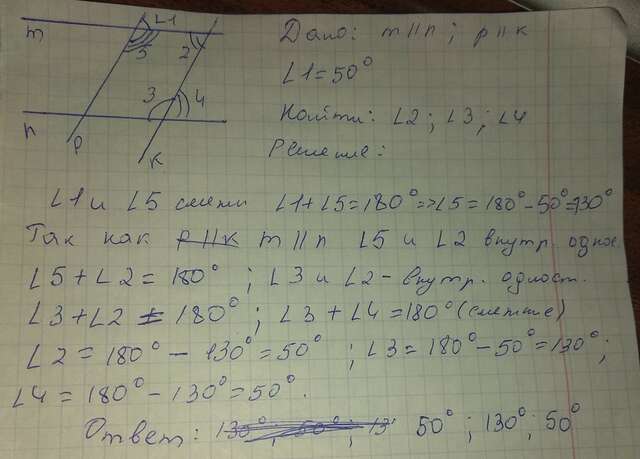 m
∠1
5
2
3
4
n
p
к
Дано: m || n ; p || к
∠1 = 50°
Найти: ∠2 ; ∠3 ; ∠4
Решение:
∠1 и ∠5 смежн ∠1+∠5=180° => ∠5 = 180° - 50° = 130°
Так как p || к m || n ∠5 и ∠2 внутр. однос
∠5 + ∠2 = 180° ; ∠3 и ∠2 - внутр. одност.
∠3 + ∠2 = 180° ; ∠3 + ∠4 = 180° (смежные)
∠2 = 180° - 130° = 50° ; ∠3 = 180° - 50° = 130° ;
∠4 = 180° - 130° = 50° .
Ответ: 130° ; 50° ; 13 50° ; 130° ; 50°